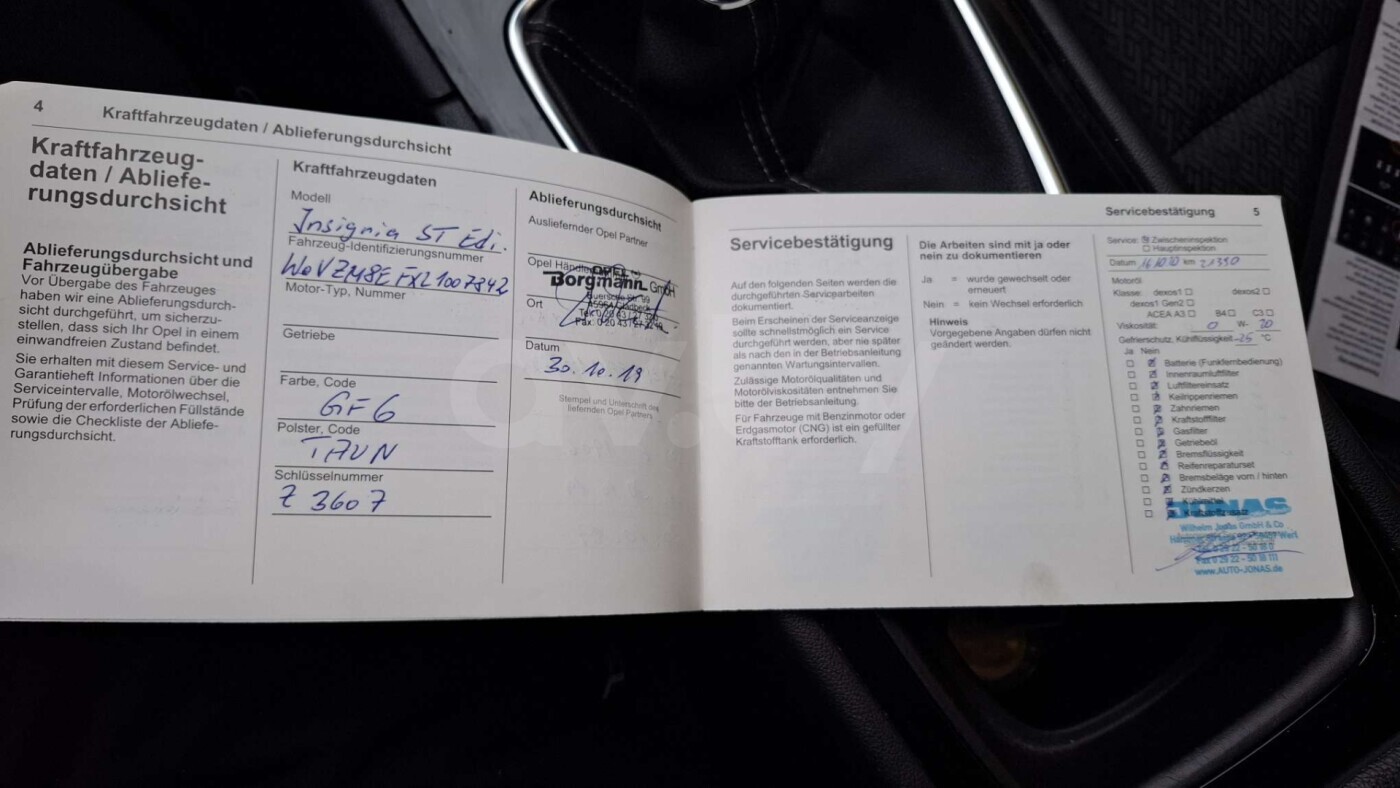 4
Kraftfahrzeugdaten / Ablieferungsdurchsicht
Kraftfahrzeug-
daten / Abliefe-
rungsdurchsicht
Ablieferungsdurchsicht und
Fahrzeugübergabe
Vor Übergabe des Fahrzeuges
haben wir eine Ablieferungsdurch-
sicht durchgeführt, um sicherzu-
stellen, dass sich Ihr Opel in einem
einwandfreien Zustand befindet.
Sie erhalten mit diesem Service- und
Garantieheft Informationen über die
Serviceintervalle, Motorölwechsel,
Prüfung der erforderlichen Füllstände
sowie die Checkliste der Abliefe-
rungsdurchsicht.
Kraftfahrzeugdaten
Modell
Insignia ST Edi.
Fahrzeug-Identifizierungsnummer
W0VZM8EFXL1007842
Motor-Typ, Nummer
Getriebe
Farbe, Code
GF6
Polster, Code
TAUN
Schlüsselnummer
Z 3607
Ablieferungsdurchsicht
Ausliefernder Opel Partner
Opel Händler
OPEL
Borgmann GmbH
Ort
Datum
30.10.19
Stempel und Unterschrift des
liefernden Opel Partners
Servicebestätigung 5
Servicebestätigung
Auf den folgenden Seiten werden die
durchgeführten Servicearbeiten
dokumentiert.
Beim Erscheinen der Serviceanzeige
sollte schnellstmöglich ein Service
durchgeführt werden, aber nie später
als nach den in der Betriebsanleitung
genannten Wartungsintervallen.
Zulässige Motorölqualitäten und
Motorölviskositäten entnehmen Sie
bitte der Betriebsanleitung.
Für Fahrzeuge mit Benzinmotor oder
Erdgasmotor (CNG) ist ein gefüllter
Kraftstofftank erforderlich.
Die Arbeiten sind mit ja oder
nein zu dokumentieren
Ja = wurde gewechselt oder
erneuert
Nein = kein Wechsel erforderlich
Hinweis
Vorgegebene Angaben dürfen nicht
geändert werden.
Service: Zwischeninspektion
Hauptinspektion
Datum km 21390
Motoröl
Klasse: dexos1 dexos2
dexos1 Gen2
ACEA A3 B4 C3
Viskosität: 0 W- 20
Gefrierschutz, Kühlflüssigkeit -25 °C
Ja Nein
Batterie (Funkfernbedienung)
Innenraumluftfilter
Luftfiltereinsatz
Keilrippenriemen
Zahnriemen
Kraftstofffilter
Gasfilter
Getriebeöl
Bremsflüssigkeit
Reifenreparaturset
Bremsbeläge vorn / hinten
Zündkerzen
JONAS
Wilhelm Jonas GmbH & Co
www.AUTO-JONAS.de